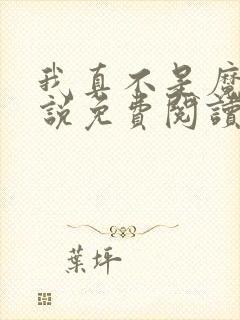 我真不是魔
說免費閱讀
葉坪